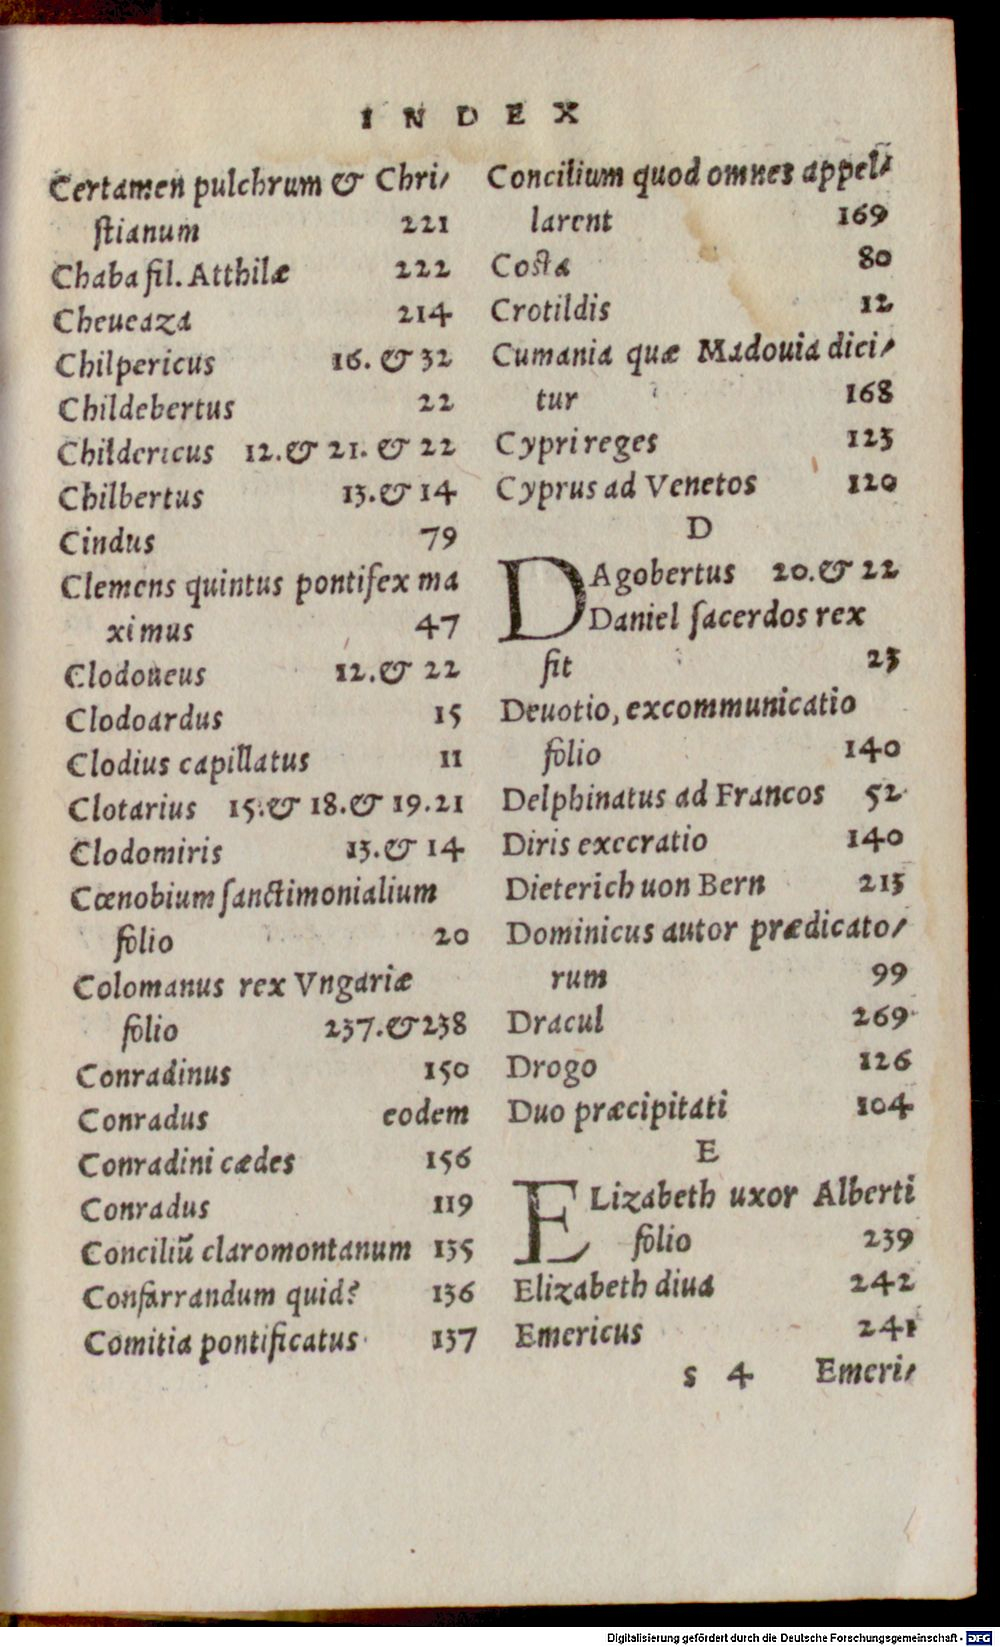 INDEX
Certamen pulchrum & Chri-
stianum 221
Chaba fil. Atthilæ 222
Cheueaza 214
Chilpericus 16. & 32
Childebertus 22
Childericus 12. & 21. & 22
Chilbertus 13. & 14
Cindus 79
Clemens quintus pontifex ma
ximus 47
Clodoueus 12. & 22
Clodoardus 15
Clodius capillatus 11
Clotarius 15. & 18. & 19. 21
Clodomiris 13. & 14
Cœnobium sanctimonialium
folio 20
Colomanus rex Vngariæ
folio 237. & 238
Conradinus 150
Conradus eodem
Conradini cædes 156
Conradus 119
Conciliū claromontanum 135
Confarrandum quid? 136
Comitia pontificatus 137
Concilium quod omnes appel-
larent 169
Costa 80
Crotildis 12
Cumania quæ Madouia dici-
tur 168
Cypri reges 123
Cyprus ad Venetos 120
D
DAgobertus 20. & 22
Daniel sacerdos rex
fit 23
Deuotio, excommunicatio
folio 140
Delphinatus ad Francos 52
Diris execratio 140
Dieterich uon Bern 213
Dominicus autor prædicato-
rum 99
Dracul 269
Drogo 126
Duo præcipitati 104
E
ELizabeth uxor Alberti
folio 239
Elizabeth diua 242
Emericus 241
s 4 Emeri-
Digitalisierung gefördert durch die Deutsche Forschungsgemeinschaft - DFG